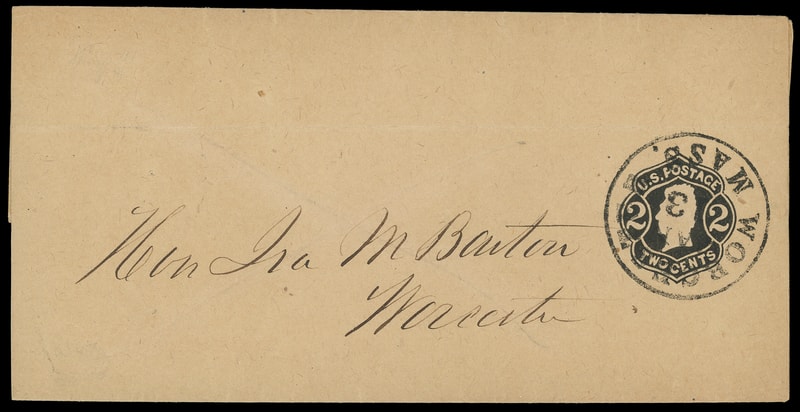 U.S. POSTAGE
2 2
TWO CENTS
MASS.
3
Hon Ira M Barton
Worcester